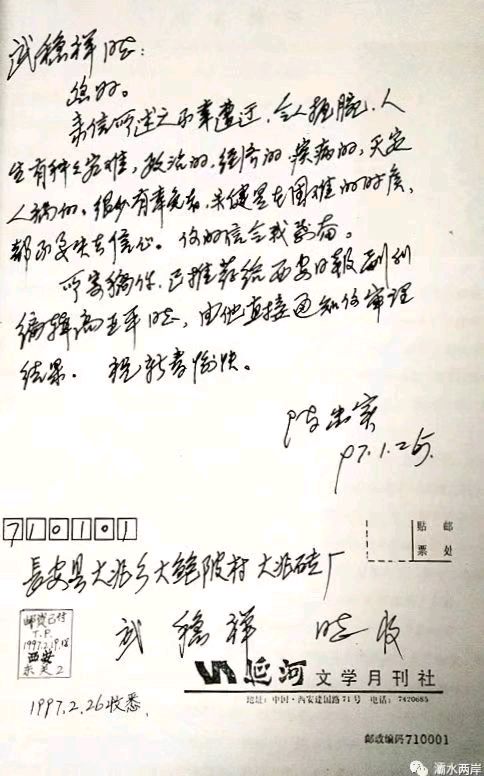 武稳祥同志:
您好。
来信所述之不幸遭遇,令人扼腕,人
生有种种灾难,政治的,经济的,疾病的,天灾
人祸的,很少有幸免者,关键是在困难的时候,
都不要失去信心。你的信令我
所寄稿件,已推荐给西安日报副刊
编辑高亚平同志,由他直接通知你审理
结果。祝新春愉快。
陈忠实
97.1.25.
710101
贴 邮
票 处
長安县大兆乡大鲍陂村大兆砖厂
武稳祥 同志收
邮资已付
T.P.
1997.2.19.18
西安
东关2
延河文学月刊社
地址:中国·西安建国路71号 电话:7420685
1997.2.26收悉.
邮政编码710001
灞水两岸